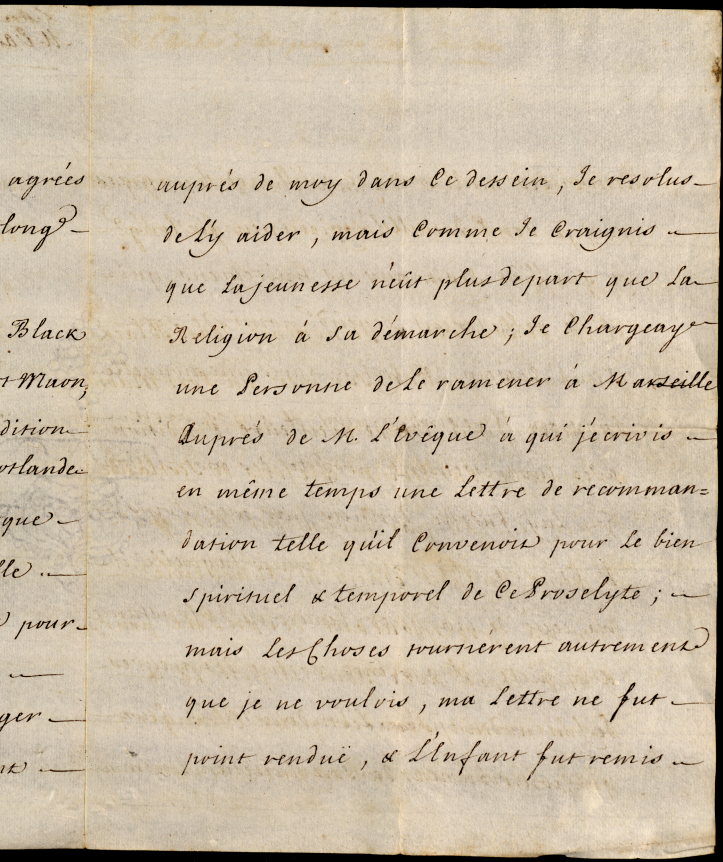 agrées
long^e
Black
t Maon,
dition
otlande
que
lle.
pour
ger
nt
auprés de moy dans Ce dessein, Je resolus
de L'y aider, mais Comme Je Craignis
que La jeunesse n'eût plus de part que La
Religion à Sa démarche; Je Chargeay
une Personne de Le ramener à Marseille
Auprés de M. L'Evêque à qui j'écrivis
en même temps une Lettre de recomman=
dation telle qu'il Convenoit pour Le bien
Spirituel & temporel de Ce Proselyte;
mais Les Choses tournérent autrement
que je ne voulois, ma Lettre ne fut
point renduë, & L'Enfant fut remis